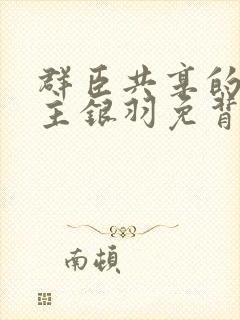 群臣共享的
主银羽免背
南頓